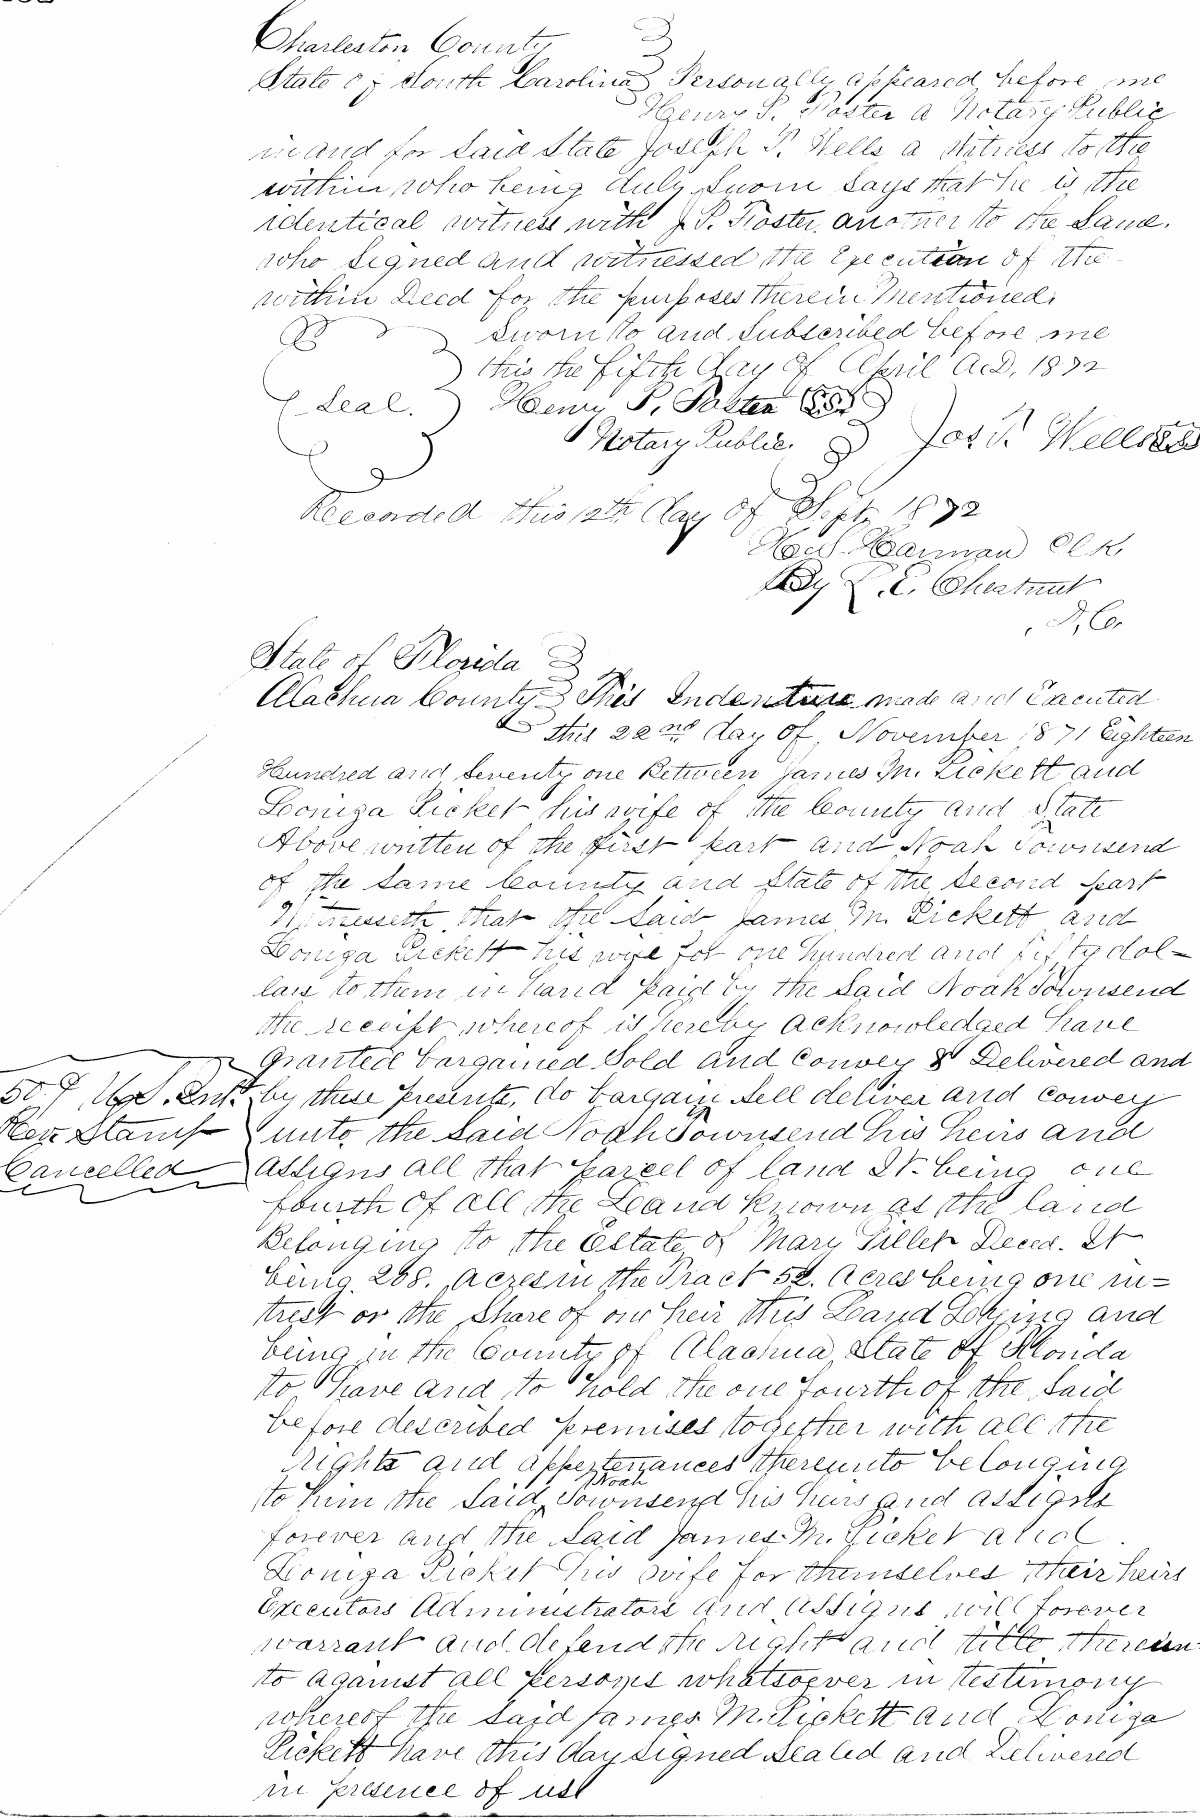 Charleston County
State of South Carolina Personally appeared before me
Henry P. Foster a Notary Public
in and for Said State Joseph T. Wells a Witness to the
within who being duly Sworn Says that he is the
identical witness with J. P. Foster another to the Same.
who Signed and witnessed the Execution of the
within Deed for the purposes therein Mentioned.
Sworn to and Subscribed before me
this the fifth day of April A.D. 1872
Seal. Henry P. Foster L.S.
Notary Public. Jos T. Wells
Recorded this 12th day of Sept. 1872
Harman Clk.
By L. E. Chestnut
D,C.
State of Florida
Alachua County This Indenture made and Executed
this 22nd day of November 1871 Eighteen
Hundred and Seventy one Between James M. Pickett and
Loniza Picket his wife of the County and State
Above written of the first part and Noah Townsend
of the Same County and State of the Second part
Witnesseth that the Said James M. Pickett and
Loniza Pickett his wife for one hundred and fifty dol=
lars to them in hand paid by the Said Noah Townsend
the receipt whereof is hereby acknowledged have
granted bargained Sold and Convey & Delivered and
by these presents, do bargain Sell deliver and convey
unto the Said Noah Townsend his heirs and
assigns all that parcel of land It being one
fourth of all the Leand known as the land
Belonging to the Estate of Mary Tillet Deced. It
being 208. Acres in the Tract 52. Acres being one in=
trest or the Share of one heir this Land Lying and
being in the County of Alachua State of Florida
to have and to hold the one fourth of the Said
before described premises together with all the
rights and appertenances thereunto belonging
to him the Said Noah Townsend his heirs and assigns
forever and the Said James M. Picket and
Loniza Picket his wife for themselves their heirs
Executors Administrators and assigns will forever
warrant and defend the right and title thereun=
to against all persons whatsoever in testimony
whereof the Said James M. Pickett and Loniza
Pickett have this day signed Sealed and Delivered
in presence of us
50¢ U.S. Int.
Rev. Stamp
Cancelled